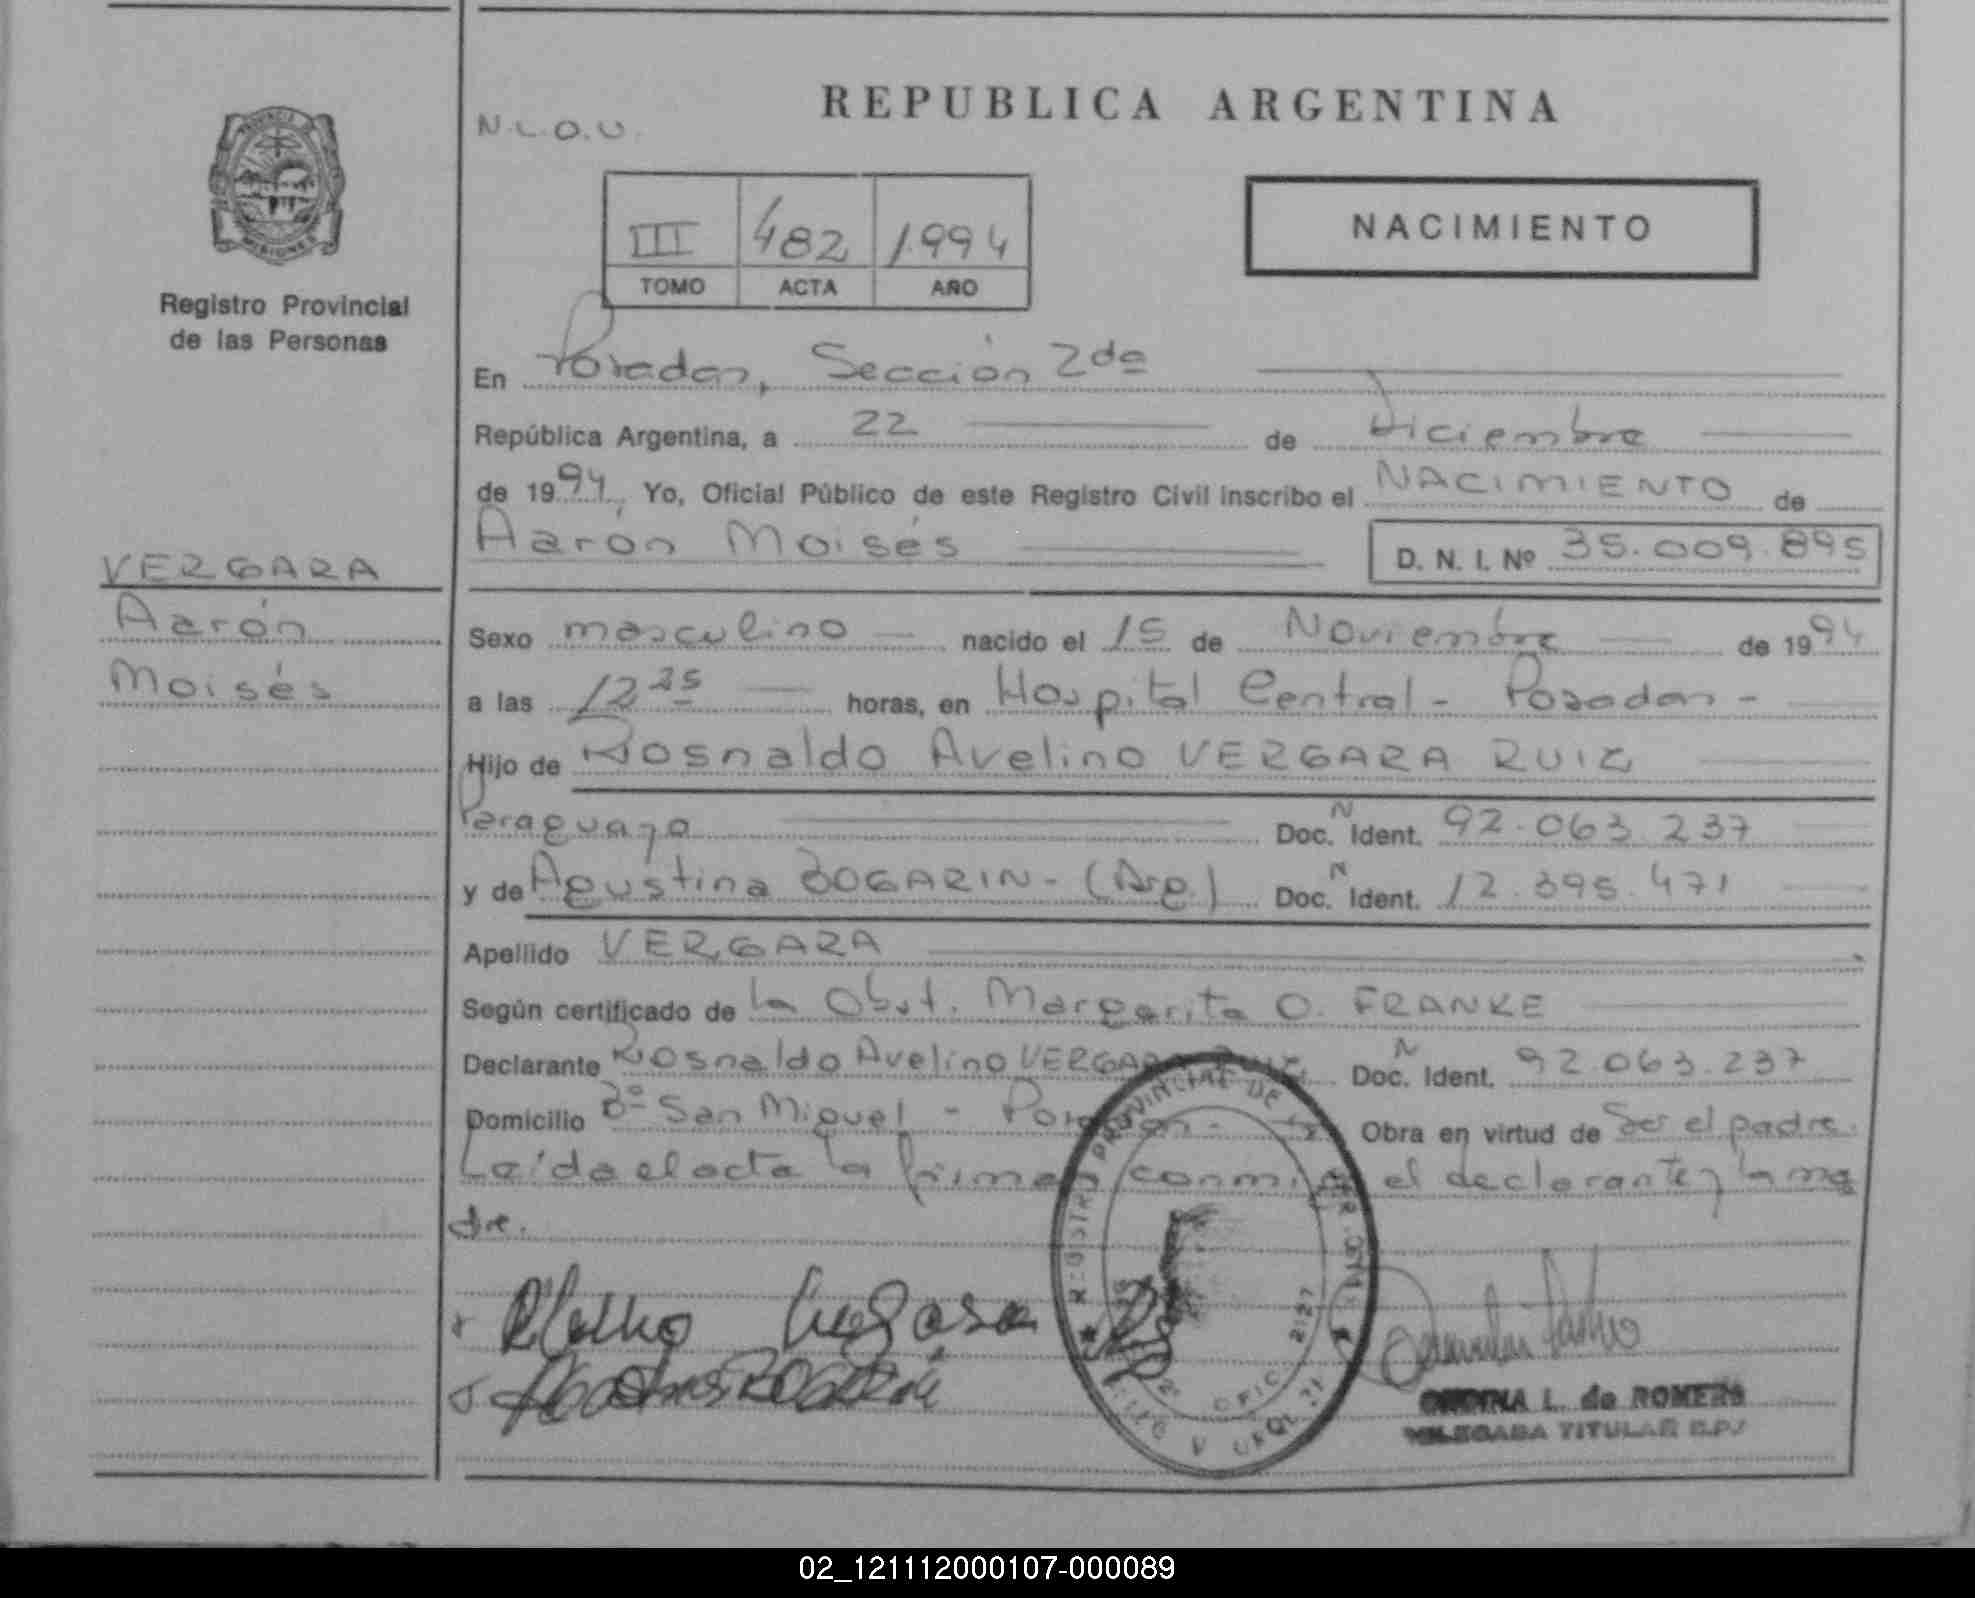 REPUBLICA ARGENTINA
N.L.O.U.
III 482 1.994
TOMO ACTA AÑO
NACIMIENTO
Registro Provincial
de las Personas
En Posadas, Sección 2da
República Argentina, a 22 de Diciembre
de 1994, Yo, Oficial Público de este Registro Civil inscribo el NACIMIENTO de
Aarón Moisés D. N. I. Nº 35.009.895
VERGARA
Aarón
Moisés
Sexo masculino nacido el 15 de Noviembre de 1994
a las 12 25 horas, en Hospital Central - Posadas -
Hijo de Rosnaldo Avelino VERGARA RUIZ
Paraguayo Doc. N Ident. 92.063.237
y de Agustina BOGARIN - (Arg.) Doc. N Ident. 12.395.471
Apellido VERGARA
Según certificado de la Obst. Margarita O. FRANKE
Declarante Rosnaldo Avelino VERGARA RUIZ Doc. N Ident. 92.063.237
Domicilio Bº San Miguel - Posadas - Obra en virtud de Ser el padre.
Leída el acta la firman conmigo el declarante y la ma
dre.
REGISTRO PROVINCIAL DE LAS PERSONAS
L. de ROMERO
DELEGADA TITULAR R.P.
02_121112000107-000089